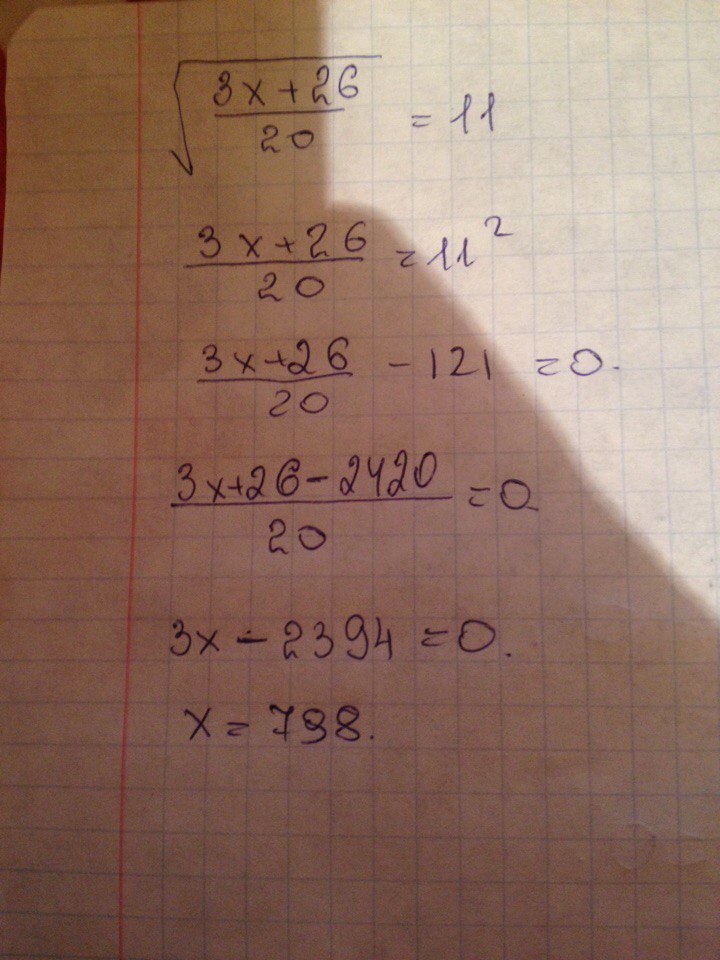 √((3x+26)/20) = 11
(3x+26)/20 = 11²
(3x+26)/20 - 121 = 0.
(3x+26-2420)/20 = 0
3x - 2394 = 0.
x = 798.